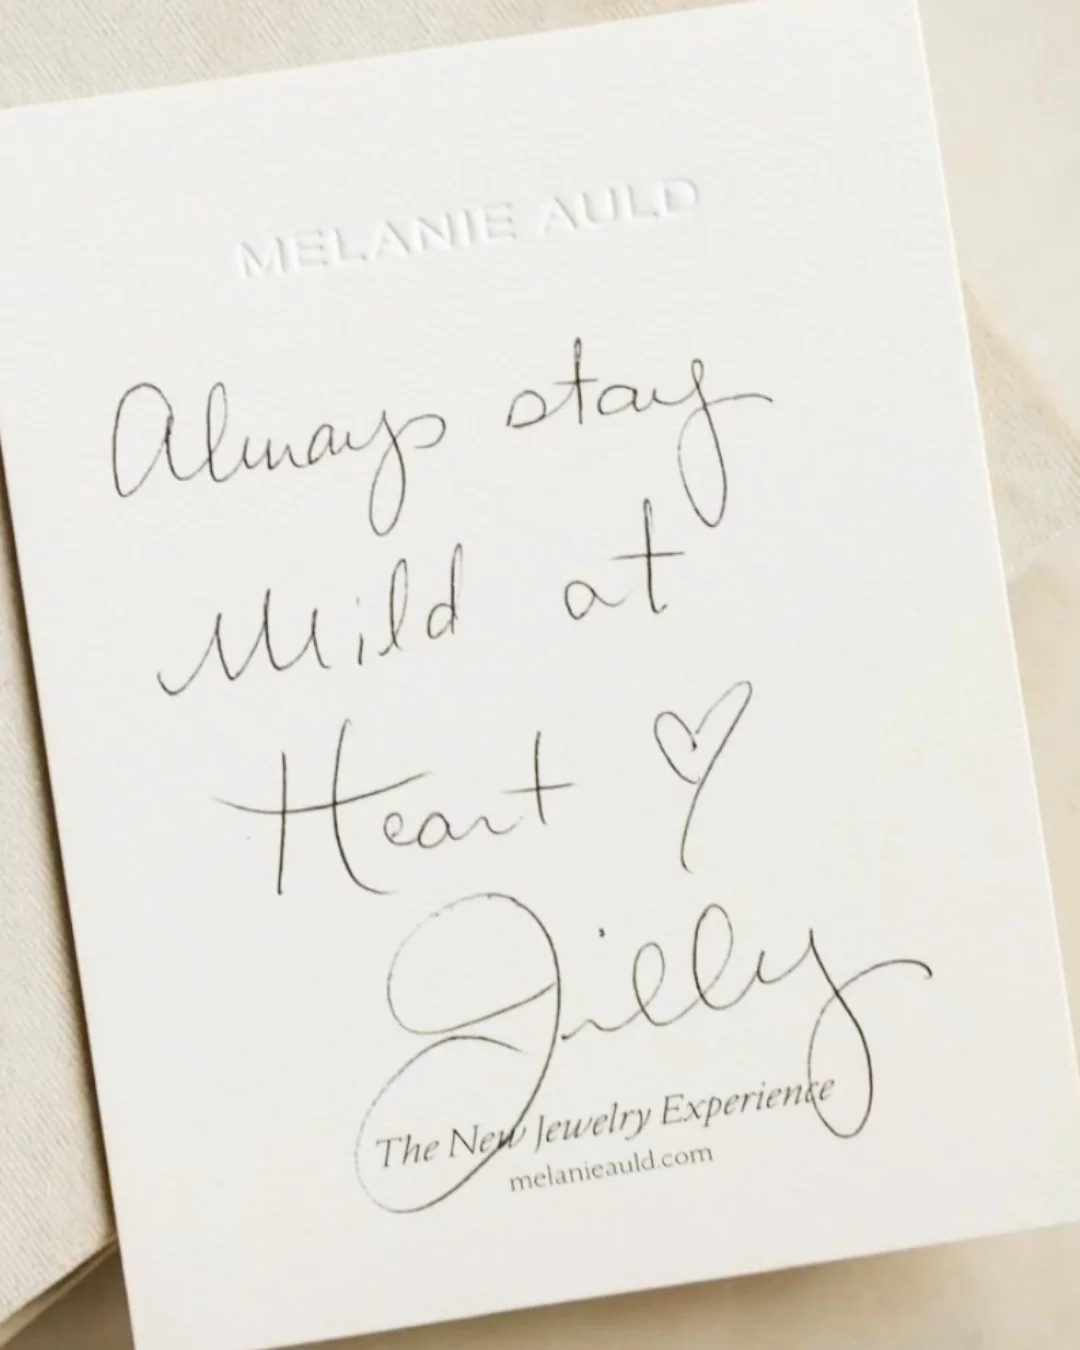 MELANIE AULD
Always stay
Mild at
Heart ♡
Jilly
The New Jewelry Experience
melanieauld.com